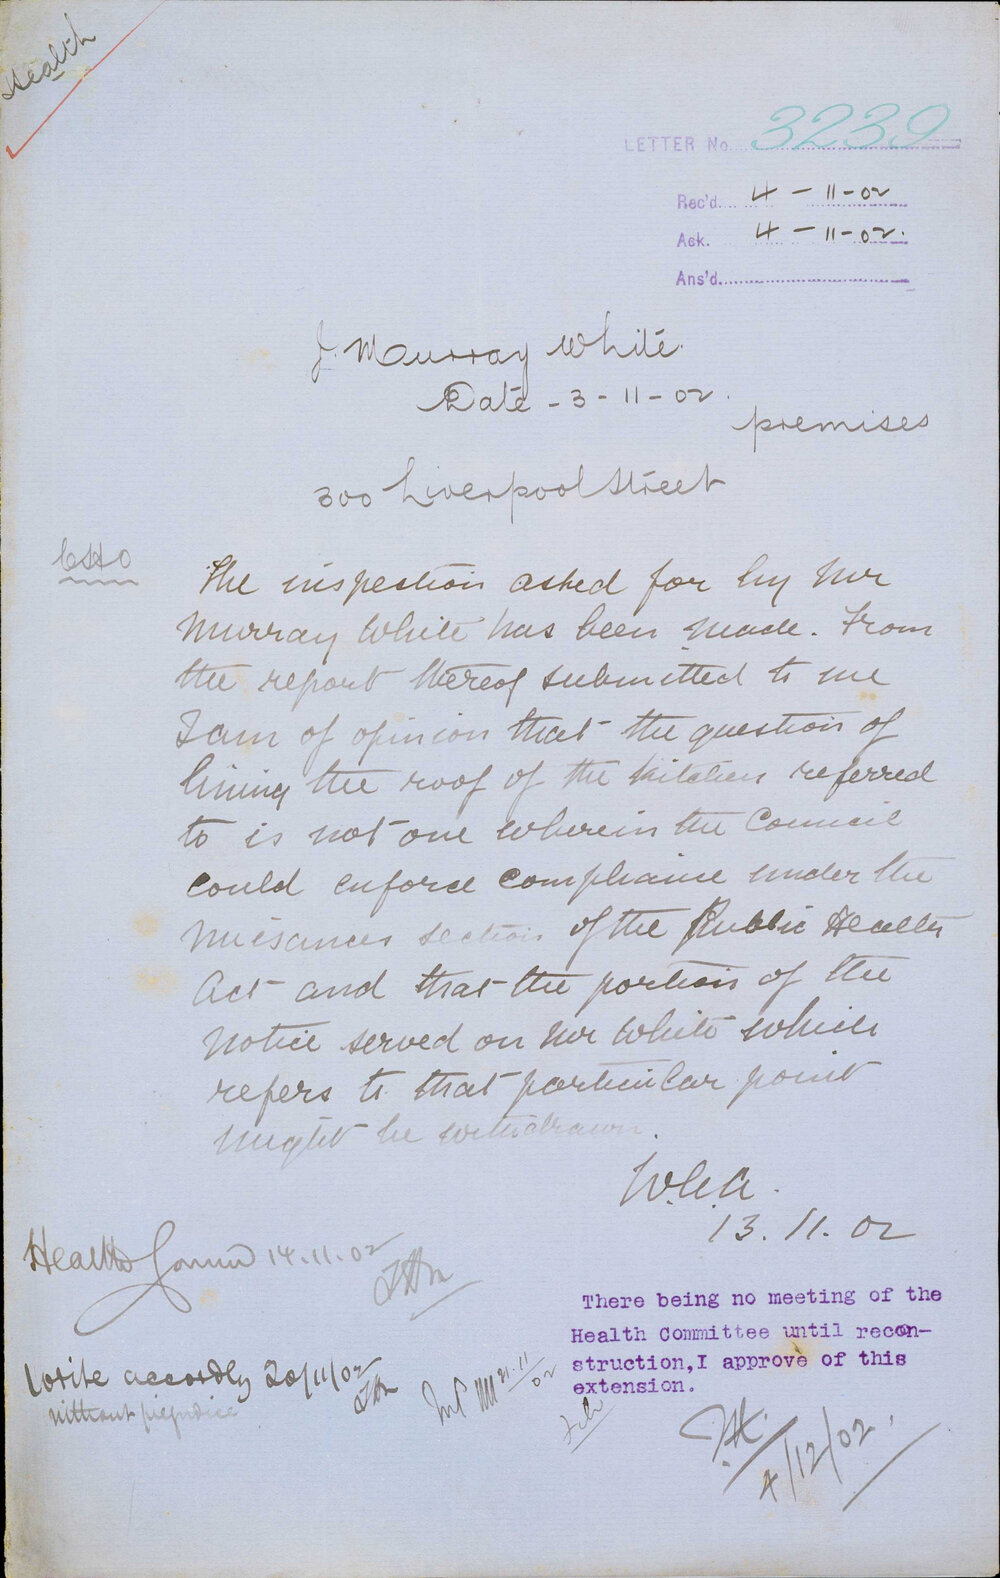 Health
LETTER No. 3239
Rec'd. 4-11-02
Ack. 4-11-02.
Ans'd.
J. Murray White.
Date - 3-11-02.
premises
300 Liverpool Street
CHO
The inspection asked for by Mr
Murray White has been made. From
the report thereof submitted to me
I am of opinion that the question of
lining the roof of the kitchen referred
to is not one wherein the Council
could enforce compliance under the
nuisances section of the Public Health
Act and that the portion of the
notice served on Mr White which
refers to that particular point
might be withdrawn.
W.G.A.
13.11.02
Health Comm 14.11.02
There being no meeting of the
Health Committee until recon-
struction, I approve of this
extension.
Write accordly 20/11/02
without prejudice
21.11
02
4/12/02.